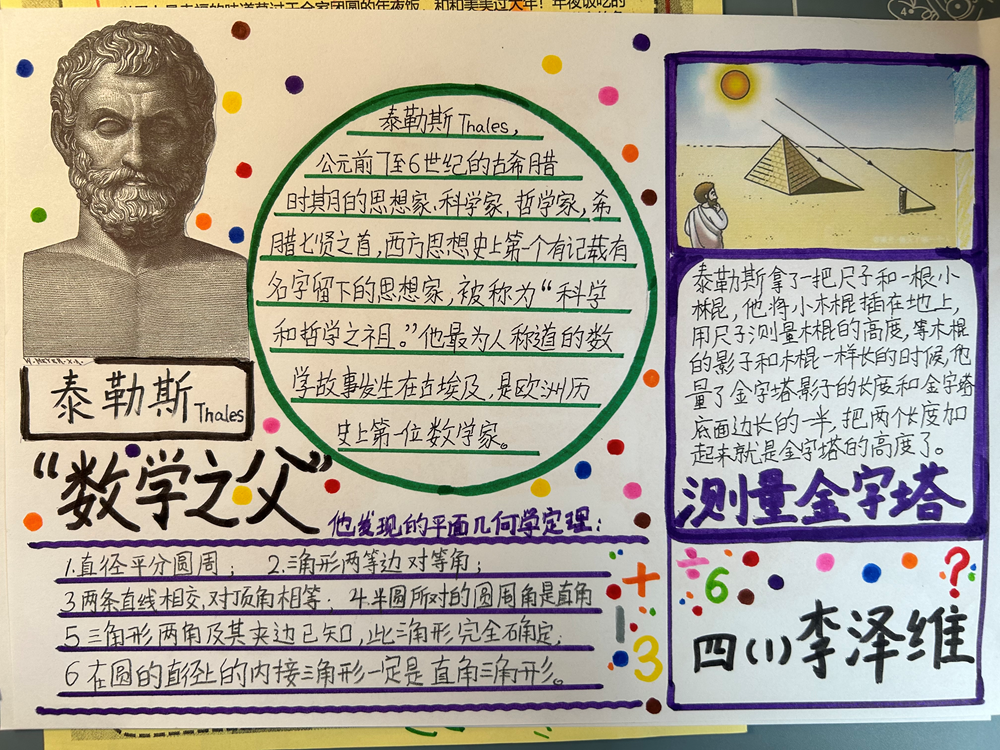 泰勒斯Thales,
公元前7至6世纪的古希腊
时期的思想家、科学家,哲学家,希
腊七贤之首,西方思想史上第一个有记载有
名字留下的思想家,被称为“科学
和哲学之祖。”他最为人称道的数
学故事发生在古埃及,是欧洲历
史上第一位数学家。
W.MEYER.X.A.
泰勒斯Thales
“数学之父”
他发现的平面几何学定理:
1.直径平分圆周; 2.三角形两等边对等角;
3两条直线相交,对顶角相等; 4.半圆所对的圆周角是直角
5三角形两角及其夹边已知,此三角形完全确定;
6在圆的直径上的内接三角形一定是直角三角形。
泰勒斯拿了一把尺子和一根小
木棍,他将小木棍插在地上,
用尺子测量木棍的高度,等木棍
的影子和木棍一样长的时候,他
量了金字塔影子的长度和金字塔
底面边长的一半,把两个长度加
起来就是金字塔的高度了。
测量金字塔
+
1
3
÷
6
?
四(1)李泽维